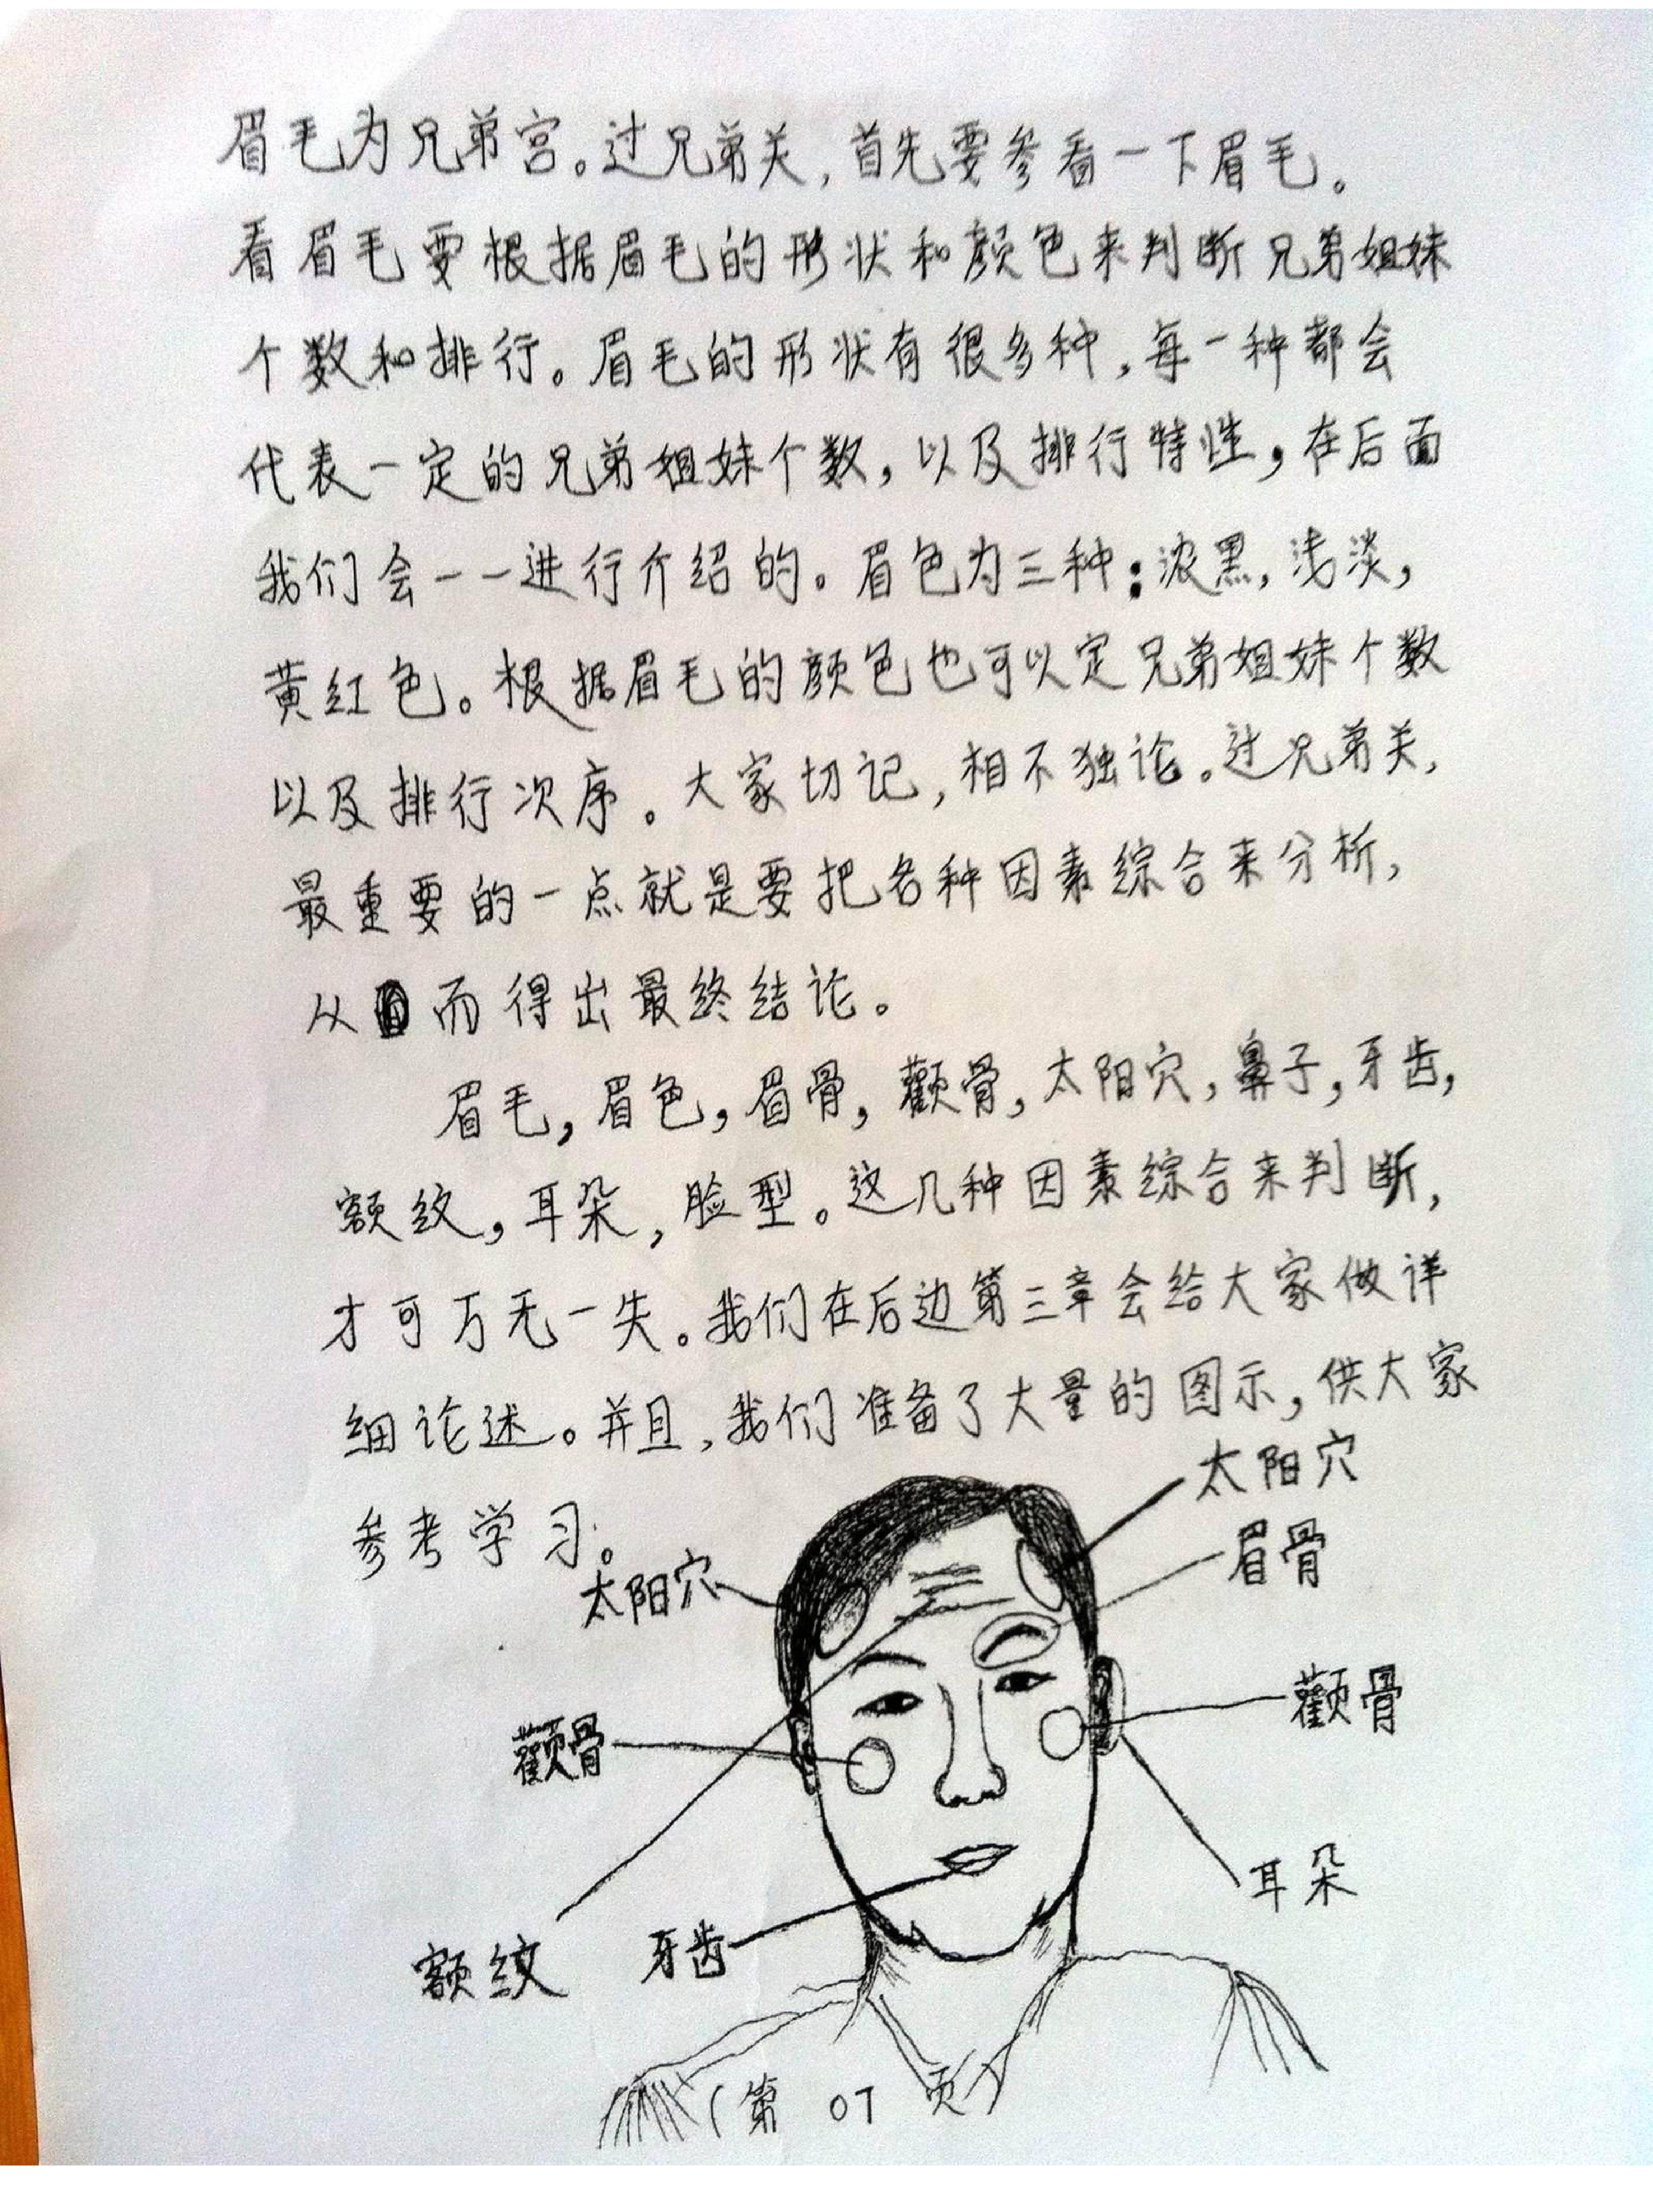 眉毛为兄弟宫。过兄弟关,首先要参看一下眉毛。
看眉毛要根据眉毛的形状和颜色来判断兄弟姐妹
个数和排行。眉毛的形状有很多种,每一种都会
代表一定的兄弟姐妹个数,以及排行特性,在后面
我们会一一进行介绍的。眉色为三种:浓黑,浅淡,
黄红色。根据眉毛的颜色也可以定兄弟姐妹个数
以及排行次序。大家切记,相不独论。过兄弟关,
最重要的一点就是要把各种因素综合来分析,
从而得出最终结论。
眉毛,眉色,眉骨,颧骨,太阳穴,鼻子,牙齿,
额纹,耳朵,脸型。这几种因素综合来判断,
才可万无一失。我们在后边第三章会给大家做详
细论述。并且,我们准备了大量的图示,供大家
参考学习。
太阳穴
太阳穴
眉骨
颧骨
颧骨
耳朵
额纹
牙齿
(第 07 页)